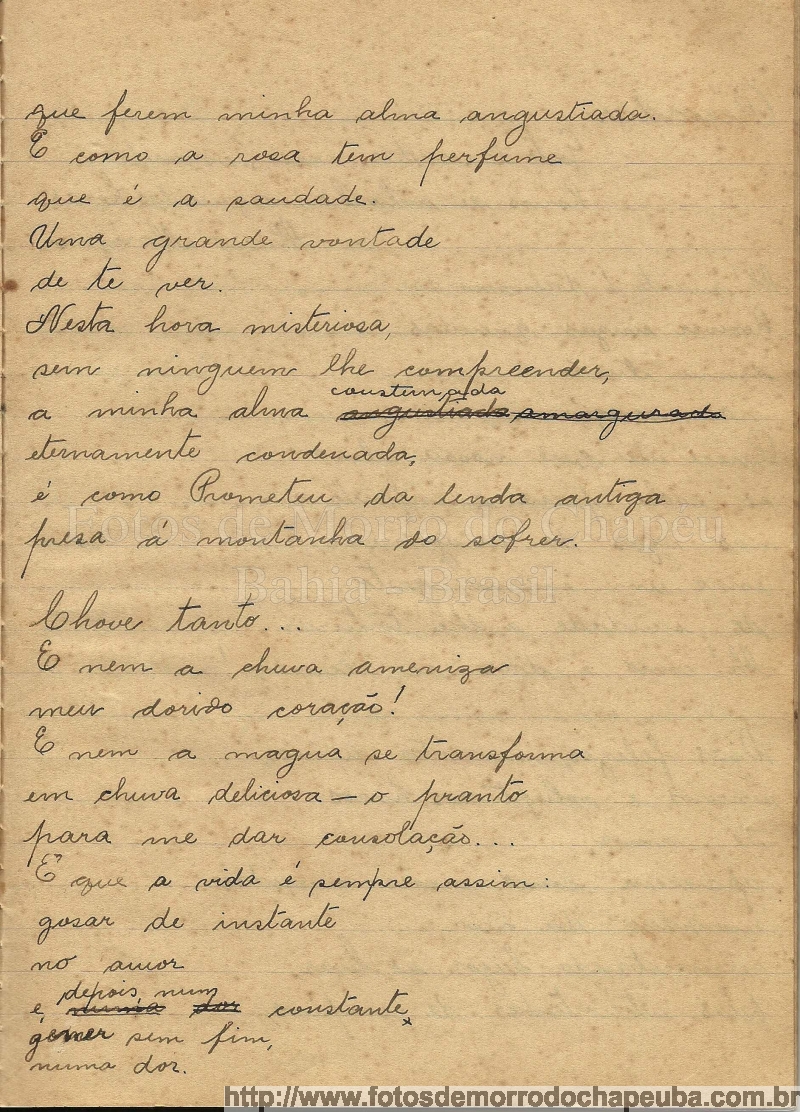 que ferem minha alma angustiada.
E como a rosa tem perfume
que é a saudade.
Uma grande vontade
de te ver.
Nesta hora misteriosa,
sem ninguem lhe compreender,
consternada
a minha alma angustiada amargurada
eternamente condenada,
é como Prometeu da lenda antiga
presa á montanha do sofrer.
Fotos de Morro do Chapéu
Bahia - Brasil
Chove tanto...
E nem a chuva ameniza
meu dorido coração!
E nem a magua se transforma
em chuva deliciosa — o pranto
para me dar consolação...
E' que a vida é sempre assim:
gosar de instante
no amor
depois, num
e, numa dor constante,
gemer sem fim,
numa dor.
http://www.fotosdemorrodochapeuba.com.br